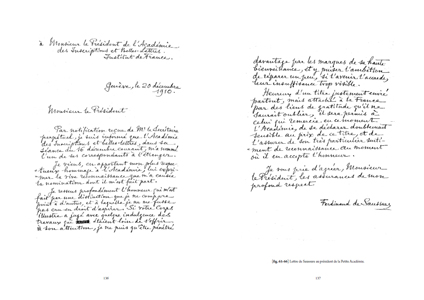 à Monsieur le Président de l'Académie
des Inscriptions et Belles-Lettres
Institut de France.
Genève, le 20 décembre
1910.
Monsieur le Président
Par notification reçue de Mr le Secrétaire
perpétuel, je suis informé que l'Académie
des Inscriptions et belles-lettres, dans sa
séance du 16 décembre courant, m'a nommé
l'un de ses correspondants à l'étranger.
Je viens, en apportant mon plus
hommage à l'Académie, lui
la vive reconnaissance que m'a causée
la nomination dont il m'est fait part.
Je ressens profondément l'honneur qui m'est
fait par une distinction que je ne
point à d'autres, et à laquelle je
pas eu un droit d'aspirer. Si votre Corps
illustre a jugé avec quelque indulgence des
travaux qui étaient loin de s'offrir
à son attention, je ne puis qu'être pénétré
davantage par les marques de sa haute
bienveillance, et y puiser l'ambition
de réparer un peu, si l'avenir l'accorde,
leur insuffisance trop visible.
Heureux d'un titre justement envié
partout, mais attaché à la France
par des liens de gratitude qu'il ne
saurait oublier, il sera permis à
celui qui remercie en ce moment
l'Académie, de se déclarer doublement
sensible au prix de ce titre, et de
l'assurer de son très particulier senti-
ment de reconnaissance au moment
où il en accepte l'honneur.
Je vous prie d'agréer, Monsieur
le Président, les assurances de mon
profond respect.
Ferdinand de Saussure
[fig. 65-66] Lettre de Saussure au président de la Petite Académie.
136
137